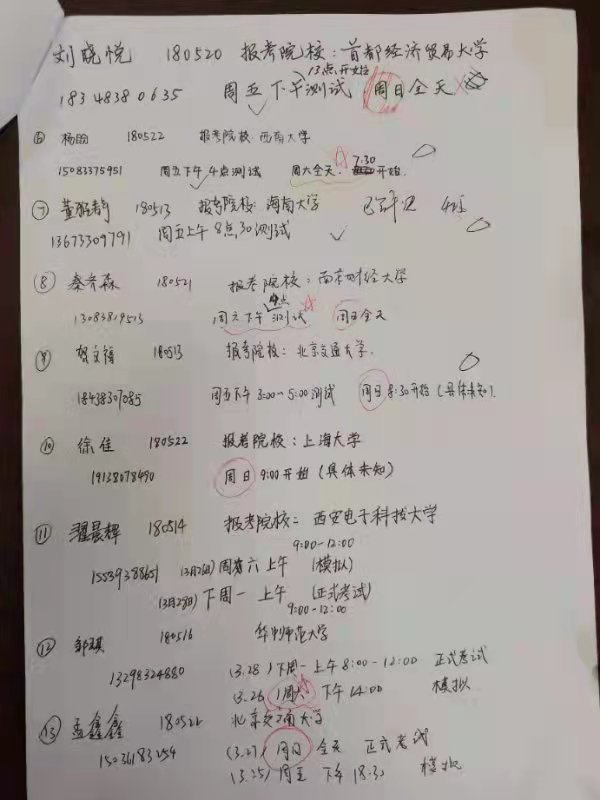 刘晓悦 180520 报考院校:首都经济贸易大学
13点开始
18348380635 周五下午测试 周日全天
⑥ 杨盼 180522 报考院校:西南大学
15083375951 周五下午4点测试 周六全天. 7:30开始.
⑦ 180513 报考院校:海南大学
13673309791 周五上午8点30测试
⑧ 秦齐森 180521 报考院校:南京财经大学
4点
13083819513 周六下午测试 周日全天
⑨ 贺文锦 180513 报考院校:北京交通大学.
18438307085 周五下午3:00-5:00测试 周日8:30开始(具体未知).
⑩ 徐佳 180522 报考院校:上海大学
19138078490 周日9:00开始(具体未知)
⑪ 翟晨辉 180514 报考院校:西安电子科技大学
9:00-12:00
15539388651 (3月26日)周六上午 (模拟)
(3月28日)下周一 上午 (正式考试)
9:00-12:00
⑫ 邹琪 180516 华中师范大学
13298324880 (3.28)下周一上午8:00-12:00 正式考试
(3.26)周六 下午14:00 模拟
⑬ 孟鑫鑫 180522 北京交通大学
15036183254 (3.27)周日 全天 正式考试
(3.25)周五 下午18:30 模拟